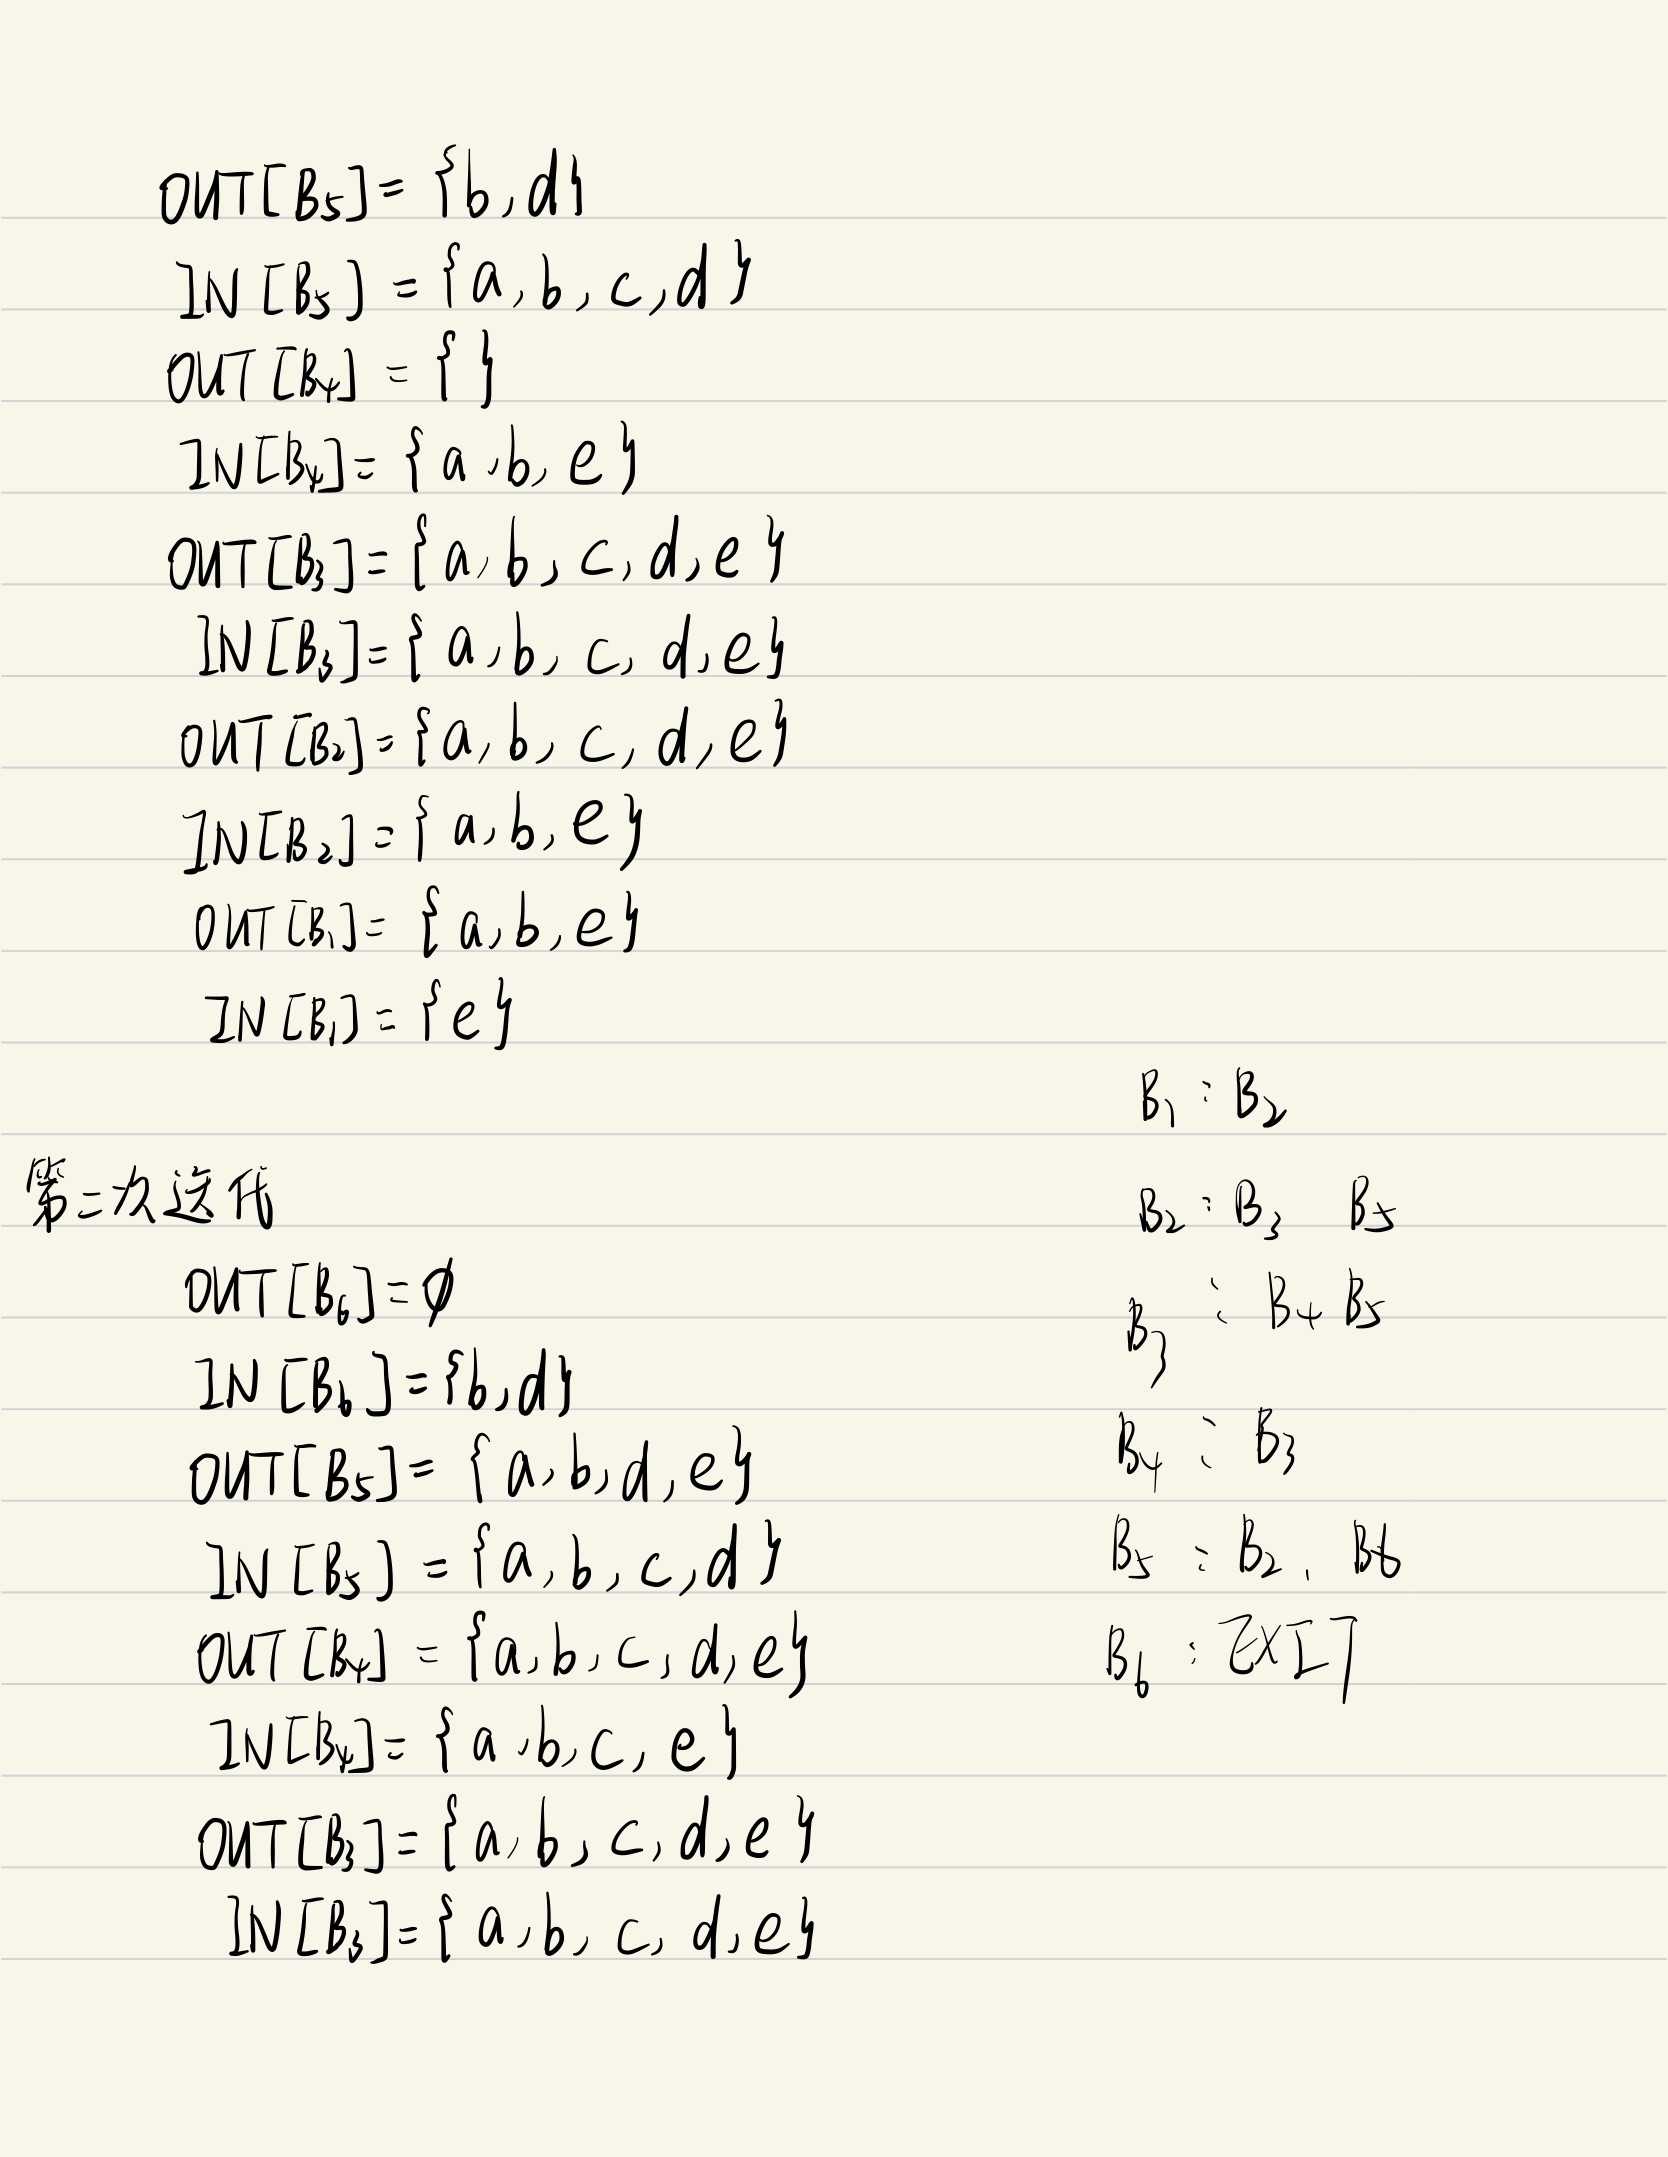 OUT[B5]={b,d}
IN[B5]={a,b,c,d}
OUT[B4]={ }
IN[B4]={a,b,e}
OUT[B3]={a,b,c,d,e}
IN[B3]={a,b,c,d,e}
OUT[B2]={a,b,c,d,e}
IN[B2]={a,b,e}
OUT[B1]={a,b,e}
IN[B1]={e}
第二次迭代
OUT[B6]=∅
IN[B6]={b,d}
OUT[B5]={a,b,d,e}
IN[B5]={a,b,c,d}
OUT[B4]={a,b,c,d,e}
IN[B4]={a,b,c,e}
OUT[B3]={a,b,c,d,e}
IN[B3]={a,b,c,d,e}
B1:B2
B2:B3 B5
B3:B4 B5
B4:B3
B5:B2, B6
B6:EXIT